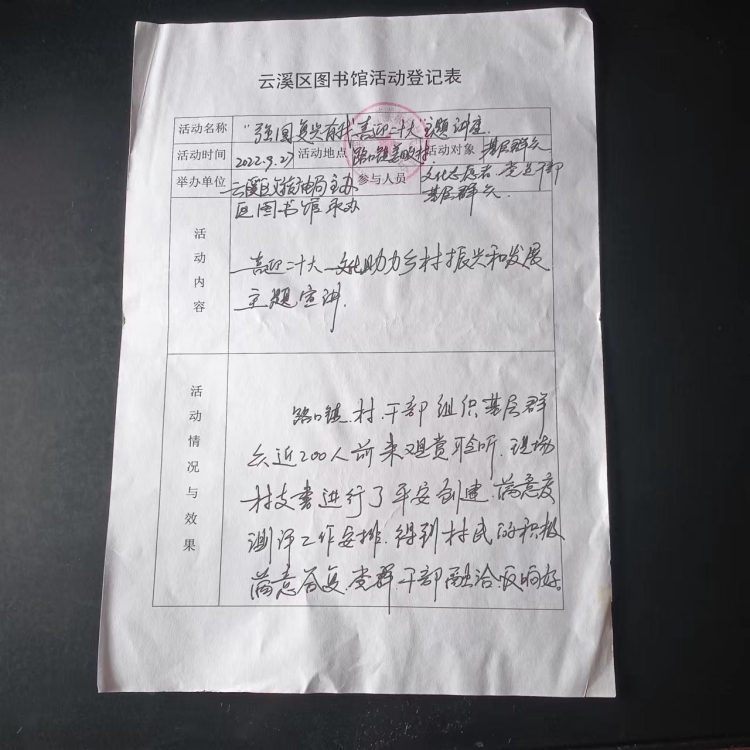 云溪区图书馆活动登记表
活动名称 "强国复兴有我 喜迎二十大"主题讲座.
活动时间 2022.9.27 活动地点 路口镇 村 活动对象 基层群众
举办单位 云溪区文旅广电局主办 参与人员 文化志愿者 党员干部
区图书馆承办 基层群众.
活动内容
喜迎二十大 文化助力乡村振兴和发展
主题宣讲.
活动情况与效果
路口镇.村.干部组织基层群
众近200人前来观赏聆听.现场
村支书进行了平安创建.满意度
测评工作安排.得到村民的积极
满意答复.党群.干部融洽.反响好.